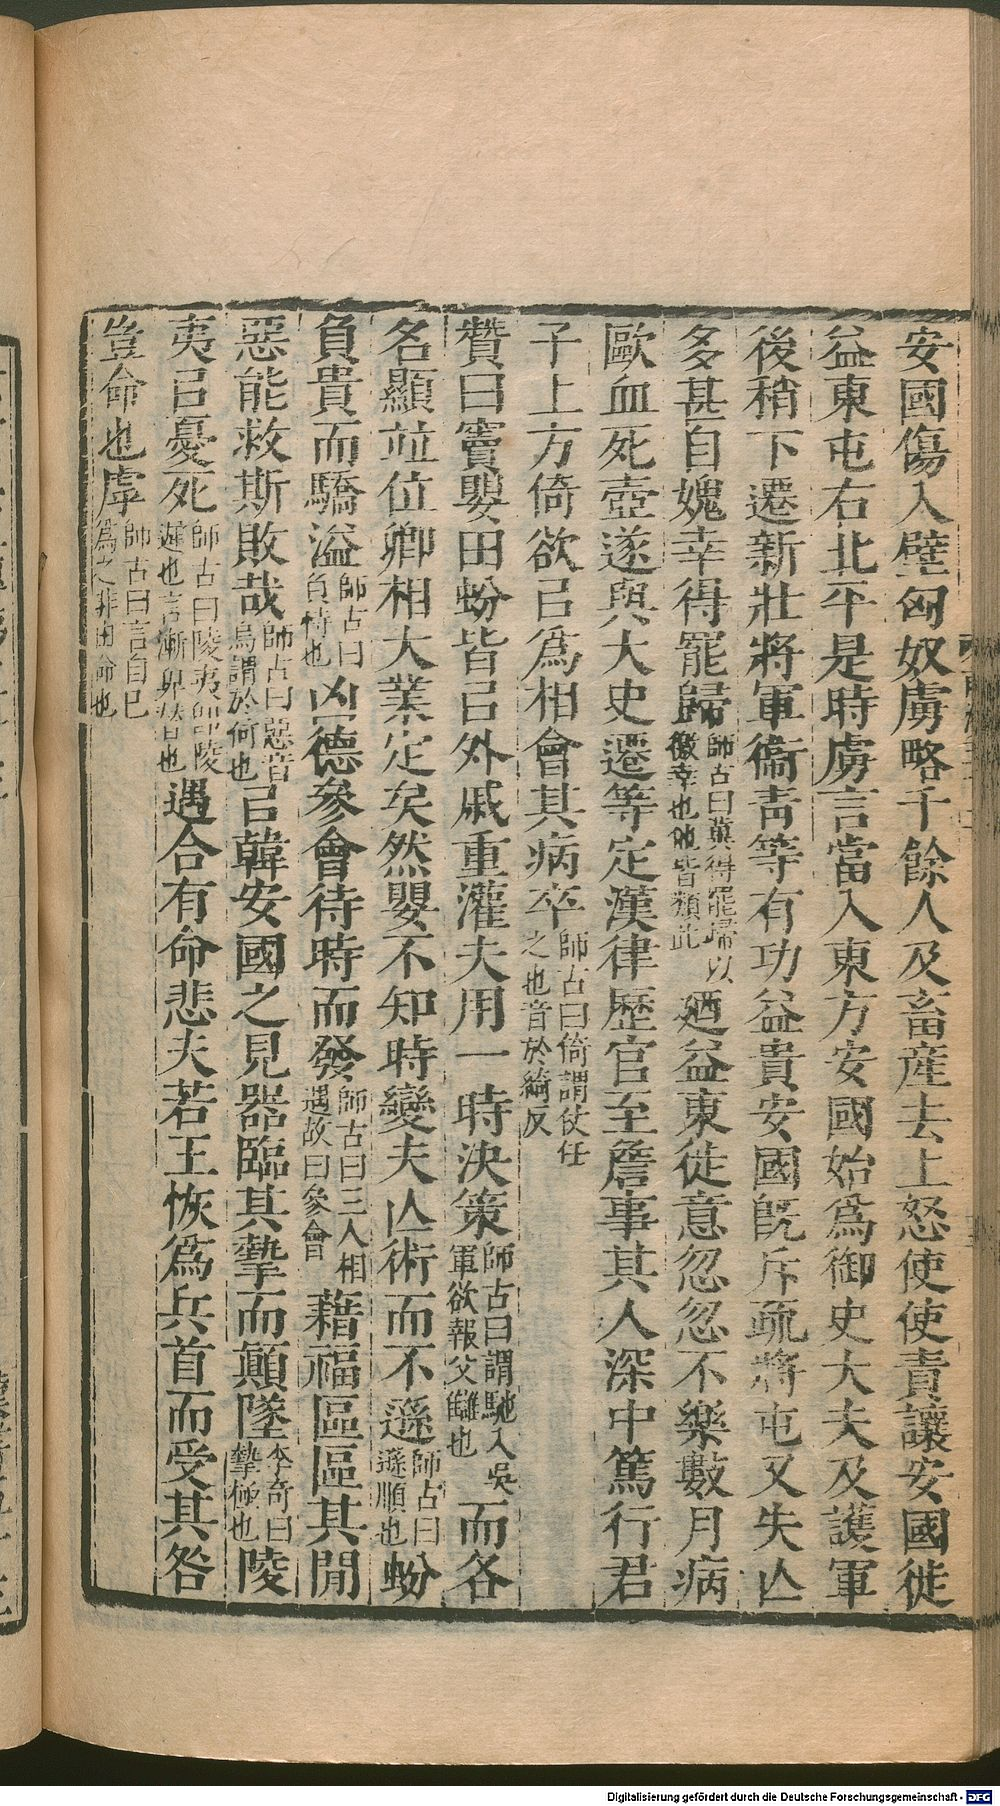 安國傷入壁匈奴虜略千餘人及畜產去上怒使使責讓安國徙
益東屯右北平是時虜言當入東方安國始爲御史大夫及護軍
後稍下遷新壯將軍衞青等有功益貴安國旣斥疏將屯又失亾
多甚自媿幸得罷歸師古曰冀得罷歸以徼幸也他皆類此廼益東徙意忽忽不樂數月病
歐血死壺遂與大史遷等定漢律歷官至詹事其人深中篤行君
子上方倚欲㠯爲相會其病卒師古曰倚謂仗任之也音於綺反
贊曰竇嬰田蚡皆㠯外戚重灌夫用一時決策師古曰謂馳入吳軍欲報父讎也而各
名顯竝位卿相大業定矣然嬰不知時變夫亾術而不遜師古曰遜順也蚡
負貴而驕溢師古曰負恃也凶德參會待時而發師古曰三人相遇故曰參會藉福區區其閒
惡能救斯敗哉師古曰惡音烏謂於何也㠯韓安國之見器臨其摯而顚墜李奇曰摯極也陵
夷㠯憂死師古曰陵夷卽陵遲也言漸卑替也遇合有命悲夫若王恢爲兵首而受其咎
豈命也虖師古曰言自己爲之非由命也
Digitalisierung gefördert durch die Deutsche Forschungsgemeinschaft - DFG